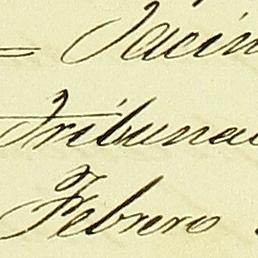 = Jacin
Tribunal
Febrero